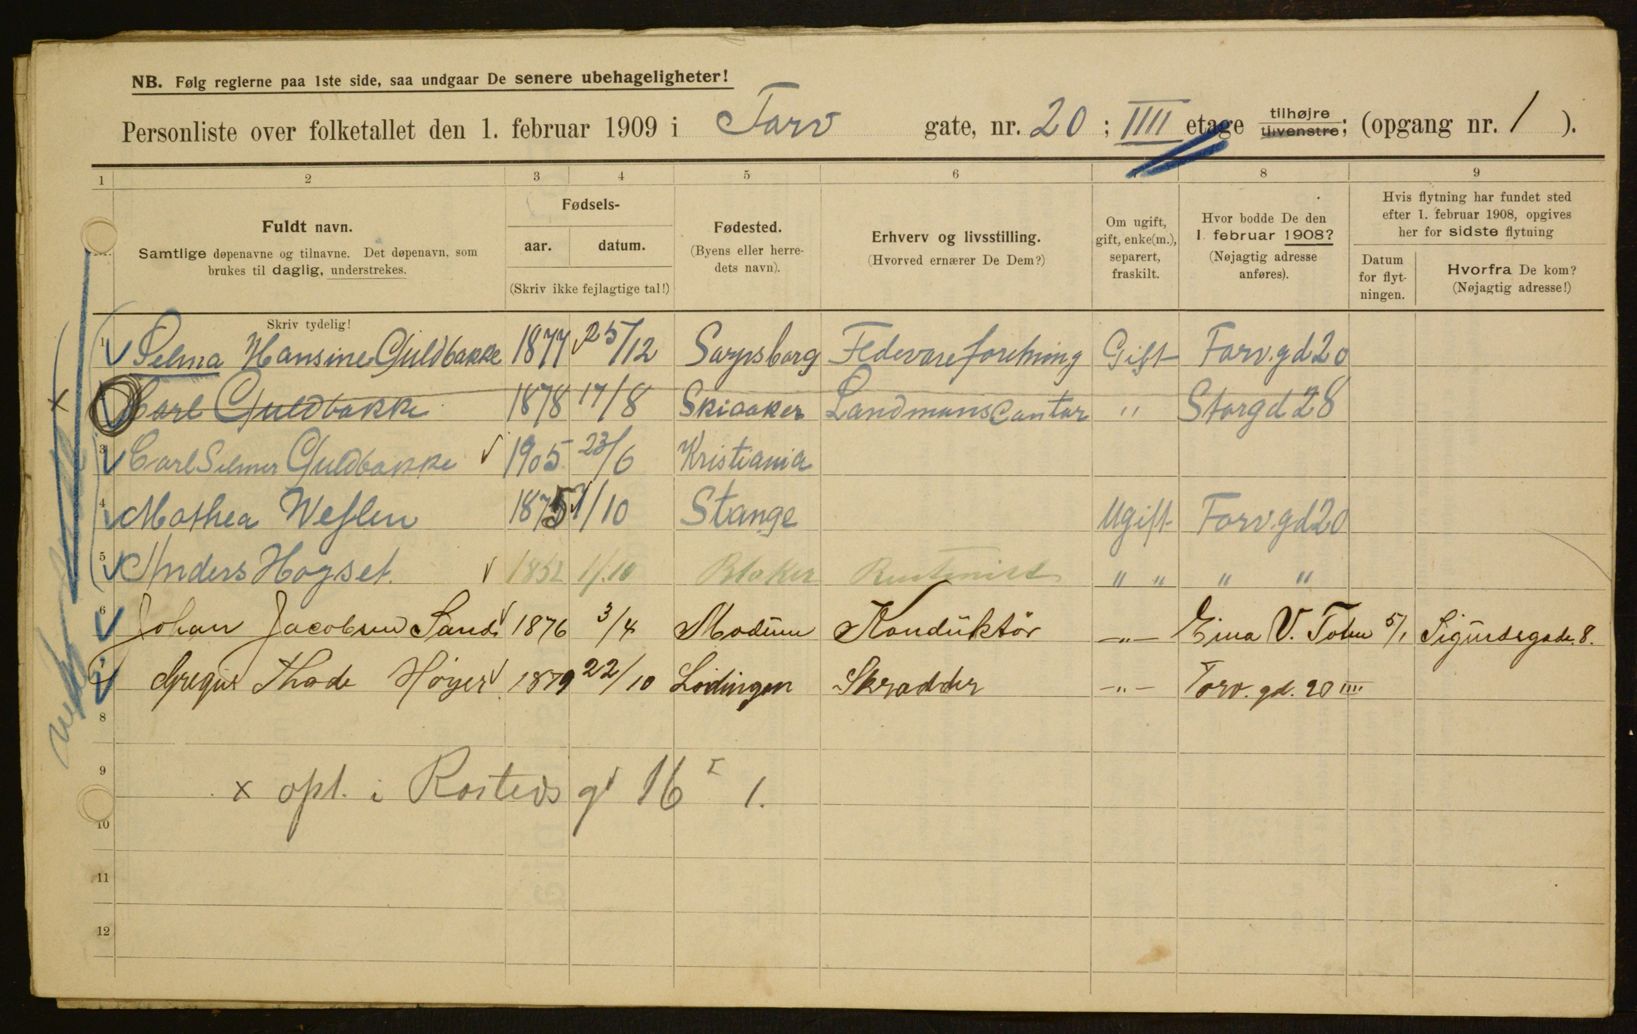 NB. Følg reglerne paa 1ste side, saa undgaar De senere ubehageligheter!
Personliste over folketallet den 1. februar 1909 i Torv gate, nr. 20 ; IIII etage tilhøjre tilvenstre; (opgang nr. 1 ).
1 2 3 4 5 6 7 8 9
Fuldt navn.
Samtlige døpenavne og tilnavne. Det døpenavn, som
brukes til daglig, understrekes.
Skriv tydelig!
Fødsels-
aar. datum.
(Skriv ikke fejlagtige tal!)
Fødested.
(Byens eller herre-
dets navn).
Erhverv og livsstilling.
(Hvorved ernærer De Dem?)
Om ugift,
gift, enke(m.),
separert,
fraskilt.
Hvor bodde De den
1. februar 1908?
(Nøjagtig adresse
anføres).
Hvis flytning har fundet sted
efter 1. februar 1908, opgives
her for sidste flytning
Datum
for flyt-
ningen.
Hvorfra De kom?
(Nøjagtig adresse!)
1 Selma Hansine Guldbakke 1877 25/12 Sarpsborg Fedevareforretning Gift Torv.gd 20
Carl Guldbakke 1878 17/8 Skiaaker Landmanscontor " Storgd 28
3 Carl Selmer Guldbakke 1905 23/6 Kristiania
4 Mathea Weflen 1875 1/10 Stange Ugift Torv.gd 20
5 Anders Hogset 1852 1/10 Blaker " " " "
6 Johan Jacobsen Sands 1876 3/4 Modum Konduktør -"- Eina V. Toten 5/1 Sigurdsgade 8.
7 Gregus Thode Höyer 1879 22/10 Lödingen Skrædder -"- Torv. gd. 20 IIII
8
9 x opt. i Rosteds gt 16 I 1.
10
11
12